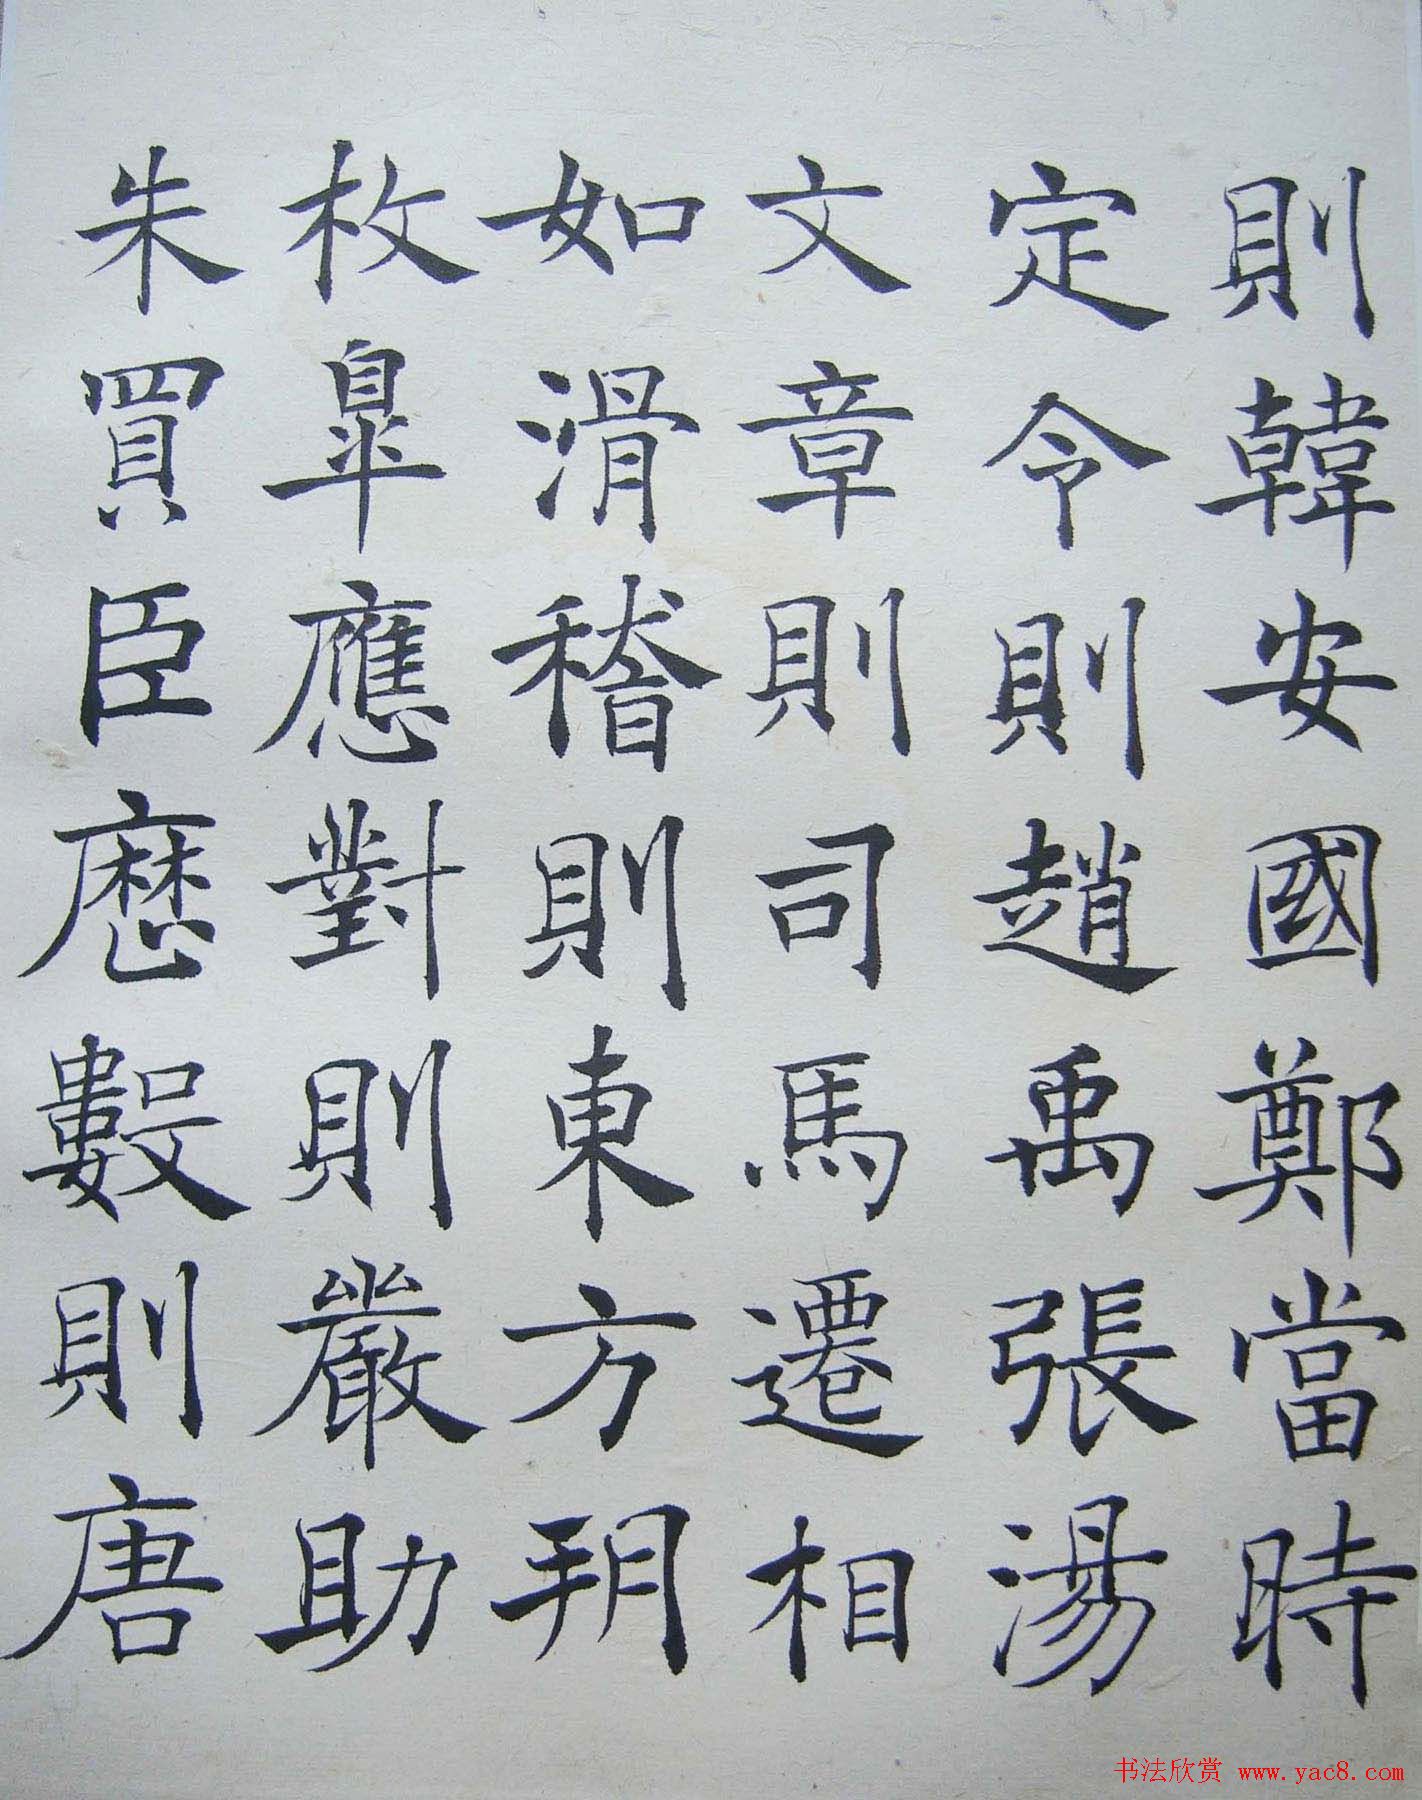 則韓安國鄭當時
定令則趙禹張湯
文章則司馬遷相
如滑稽則東方朔
枚皐應對則嚴助
朱買臣厯數則唐
书法欣赏 www.yac8.com